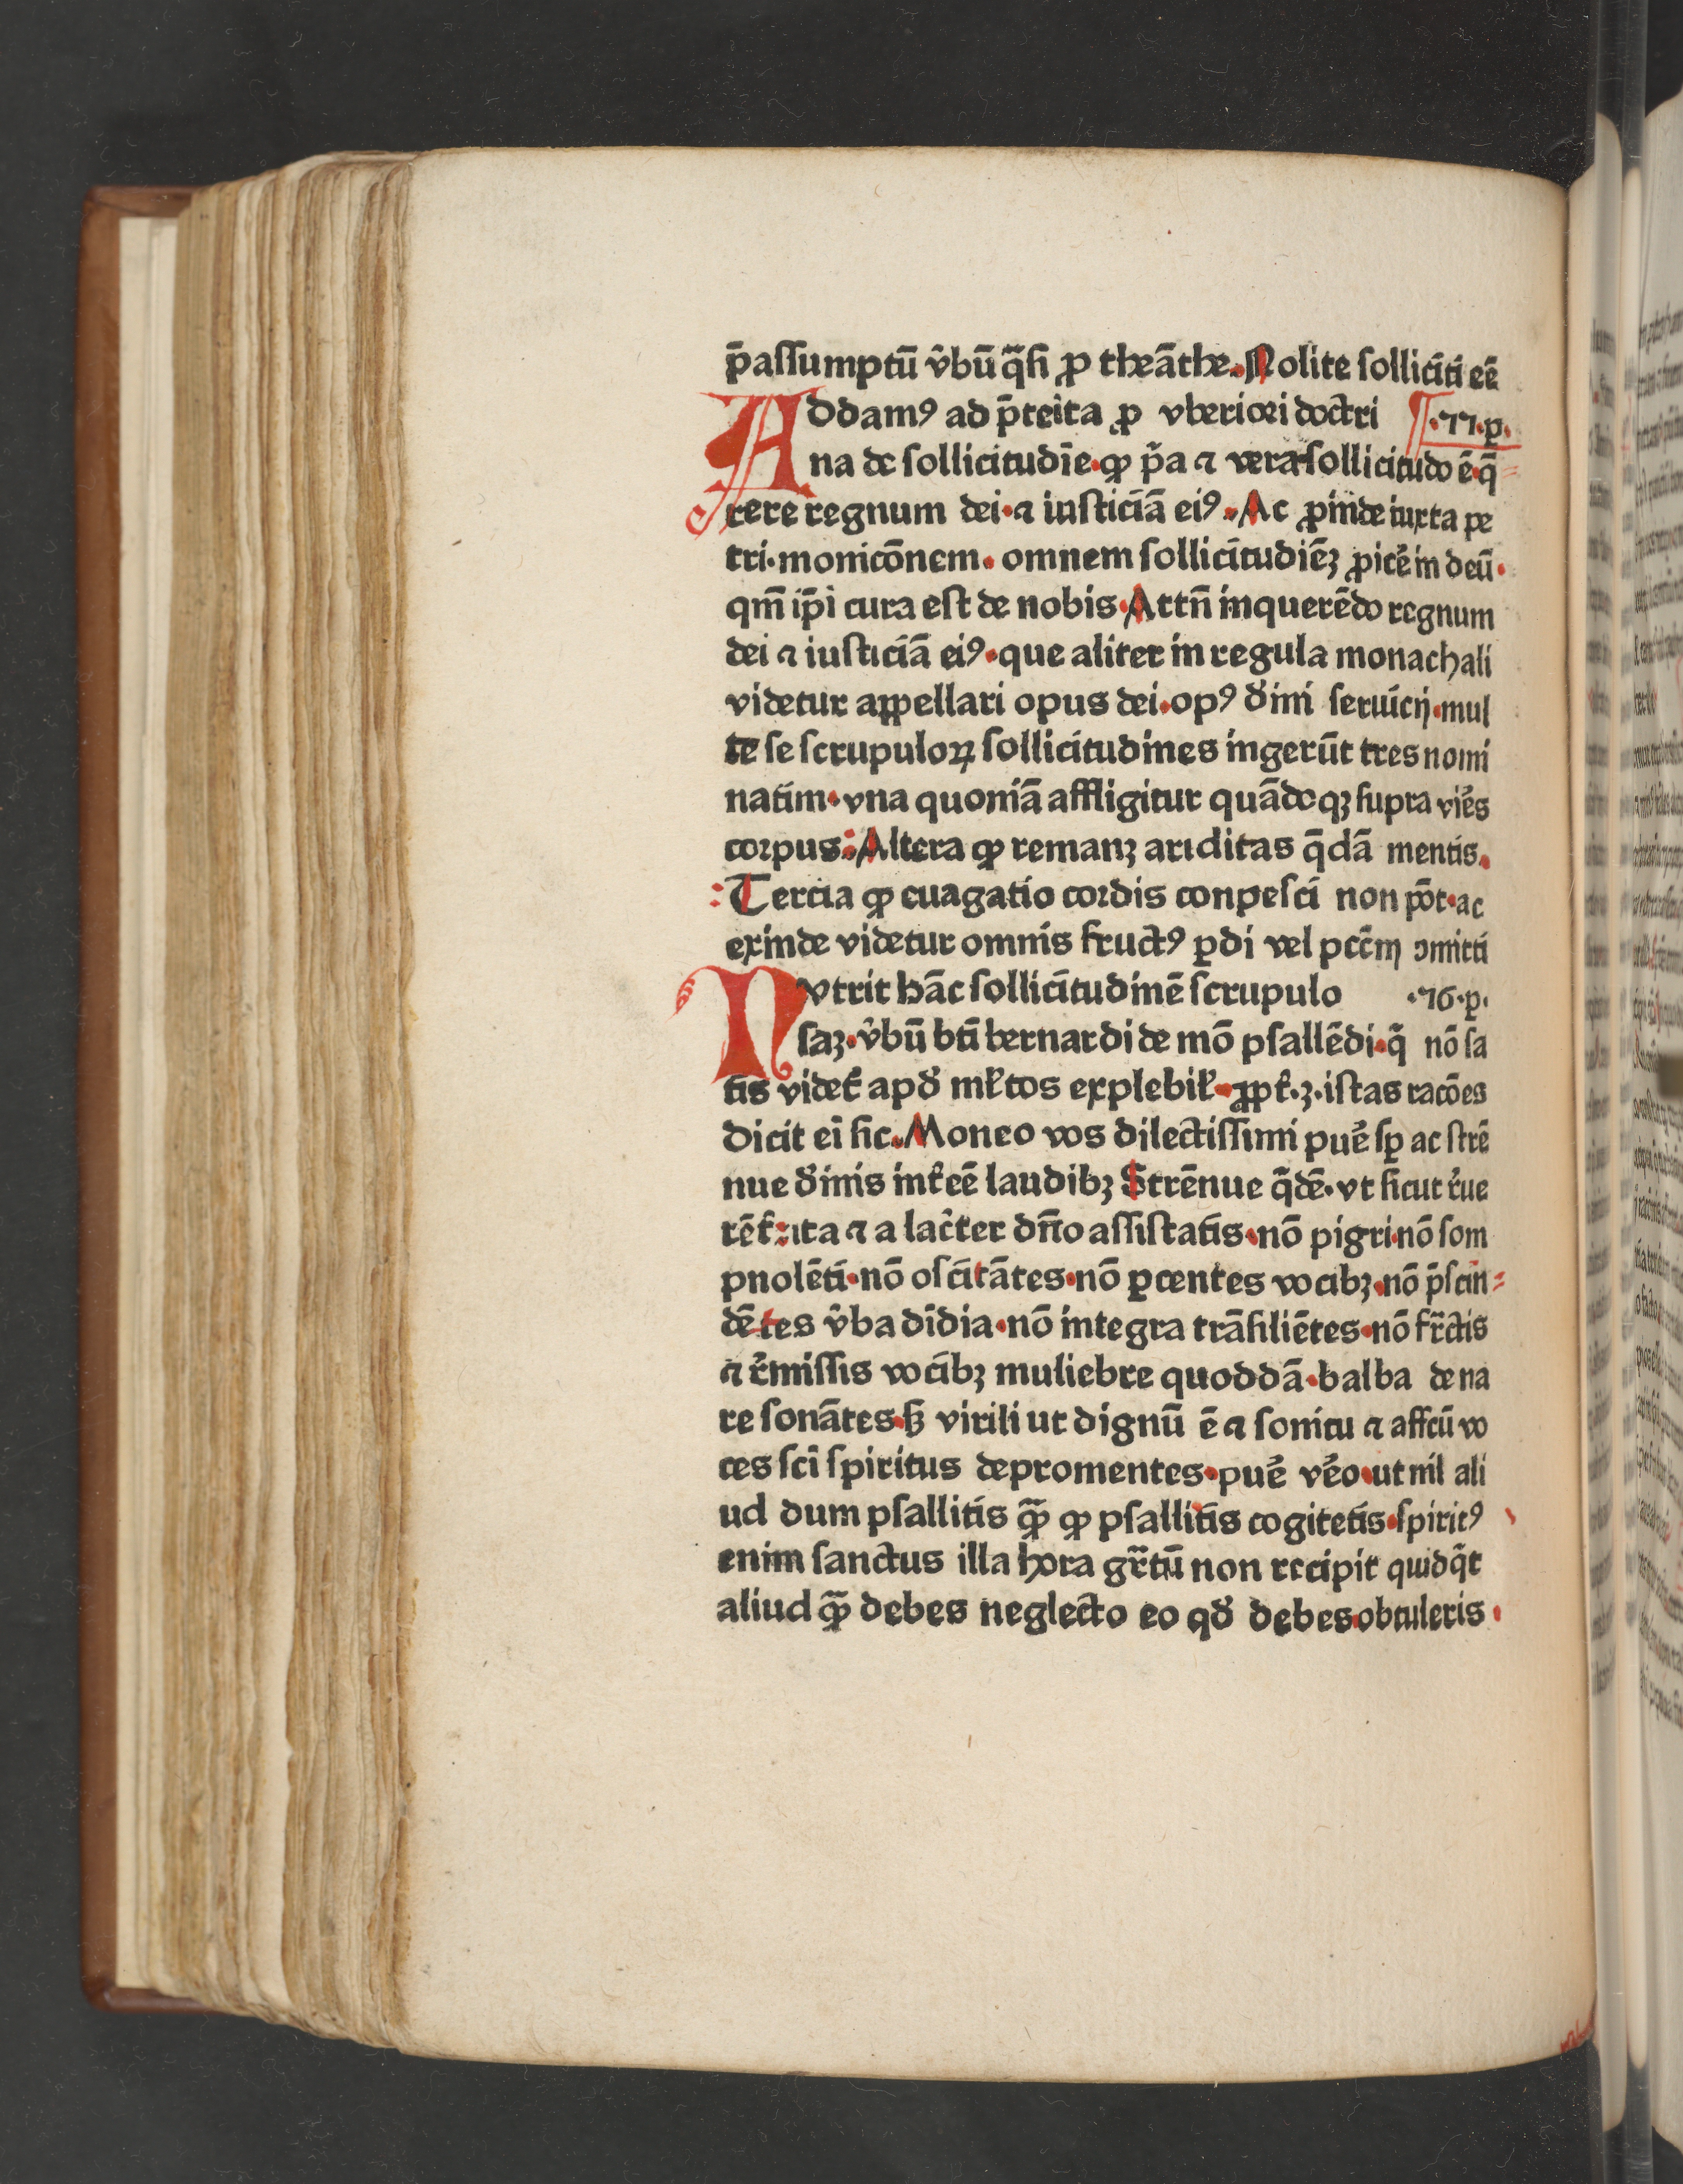 p̄assumptū v̂bū q̄si ꝓ theāthe. Nolite solliciti eē
Addamꝰ ad p̄teīta ꝓ vberiori doctri ¶·77·p.
na de sollicitudīe·ꝙ p̄a ⁊ vera sollicitudo ē·q̄
rere regnum dei·⁊ iusticiā eiꝰ. Ac ꝓinde iuxta pe
tri·monicōnem. omnem sollicitudiēꝫ ꝓicêin deū·
qm̄ ip̄i cura est de nobis. Attn̄ inquerēdo regnum
dei ⁊ iusticiā eiꝰ·que aliter in regula monachali
videtur appellari opus dei·opꝰ d̄ini seruicij·mul
te se scrupuloꝝ sollicitudines ingerūt tres nomi
natim·vna quoniā affligitur quādoqꝫ supra viês
corpus: Altera ꝙ remanꝫ ariditas q̄dā mentis.
Tercia ꝙ euagatio cordis conpesci non pōt·ac
exinde videtur omnis fructꝰ ꝑdi vel pcc̄m ɔmitti
Nvtrit hāc sollicitudinē scrupulo ·76·p.
saꝫ·v̂bū bti̅ bernardi de mō psallēdi·q̄ nō sa
tis videt᷑ apđ mƚtos explebiƚ·ꝓpt᷑·ꝫ·istas racōes
dicit ei̅ sic. Moneo vos dilectissimi puê sꝑ ac strē
nue d̄inis int᷑eē laudibꝫ Strēnue q̄dē·vt sicut r᷑ue
rēt᷑:ita ⁊ a lac̄ter dn̄o assistatis·nō pigri·nō som
pnolēti·nō oscitātes·nō ꝑcentes vocibꝫ·nō p̄scin=
dētes v̂ba dīdia·nō integra trāsiliētes·nō fr̄ctis
⁊ r᷑missis vocibꝫ muliebre quoddā·balba de na
re sonātes·sꝫ virili ut dignū ē ⁊ sonitu ⁊ affc̄ū vo
ces sci̅ spiritus depromentes·puê vêo·ut nil ali
ud dum psallitis qꝫ̄ ꝙ psallitis cogitetis·spiritꝰ
enim sanctus illa hora gr̄tū non recipit quidq̄t
aliud qꝫ̄ debes neglecto eo qđ debes·obtuleris·